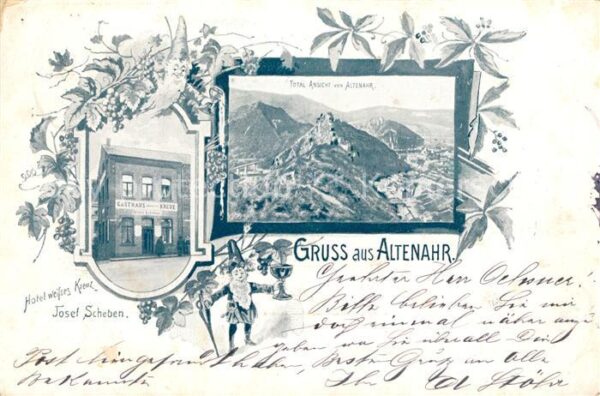 TOTAL ANSICHT VON ALTENAHR.
GASTHAUS KREUZ
Hotel weißes Kreuz
Josef Scheben.
GRUSS AUS ALTENAHR.
Geehrter Herr Oelsner!
Bitte belieben Sie mir
doch einmal näher anzu
geben wo Sie überall Die
Post hingesandt haben, Besten Gruß an alle
Bekannte Ihr